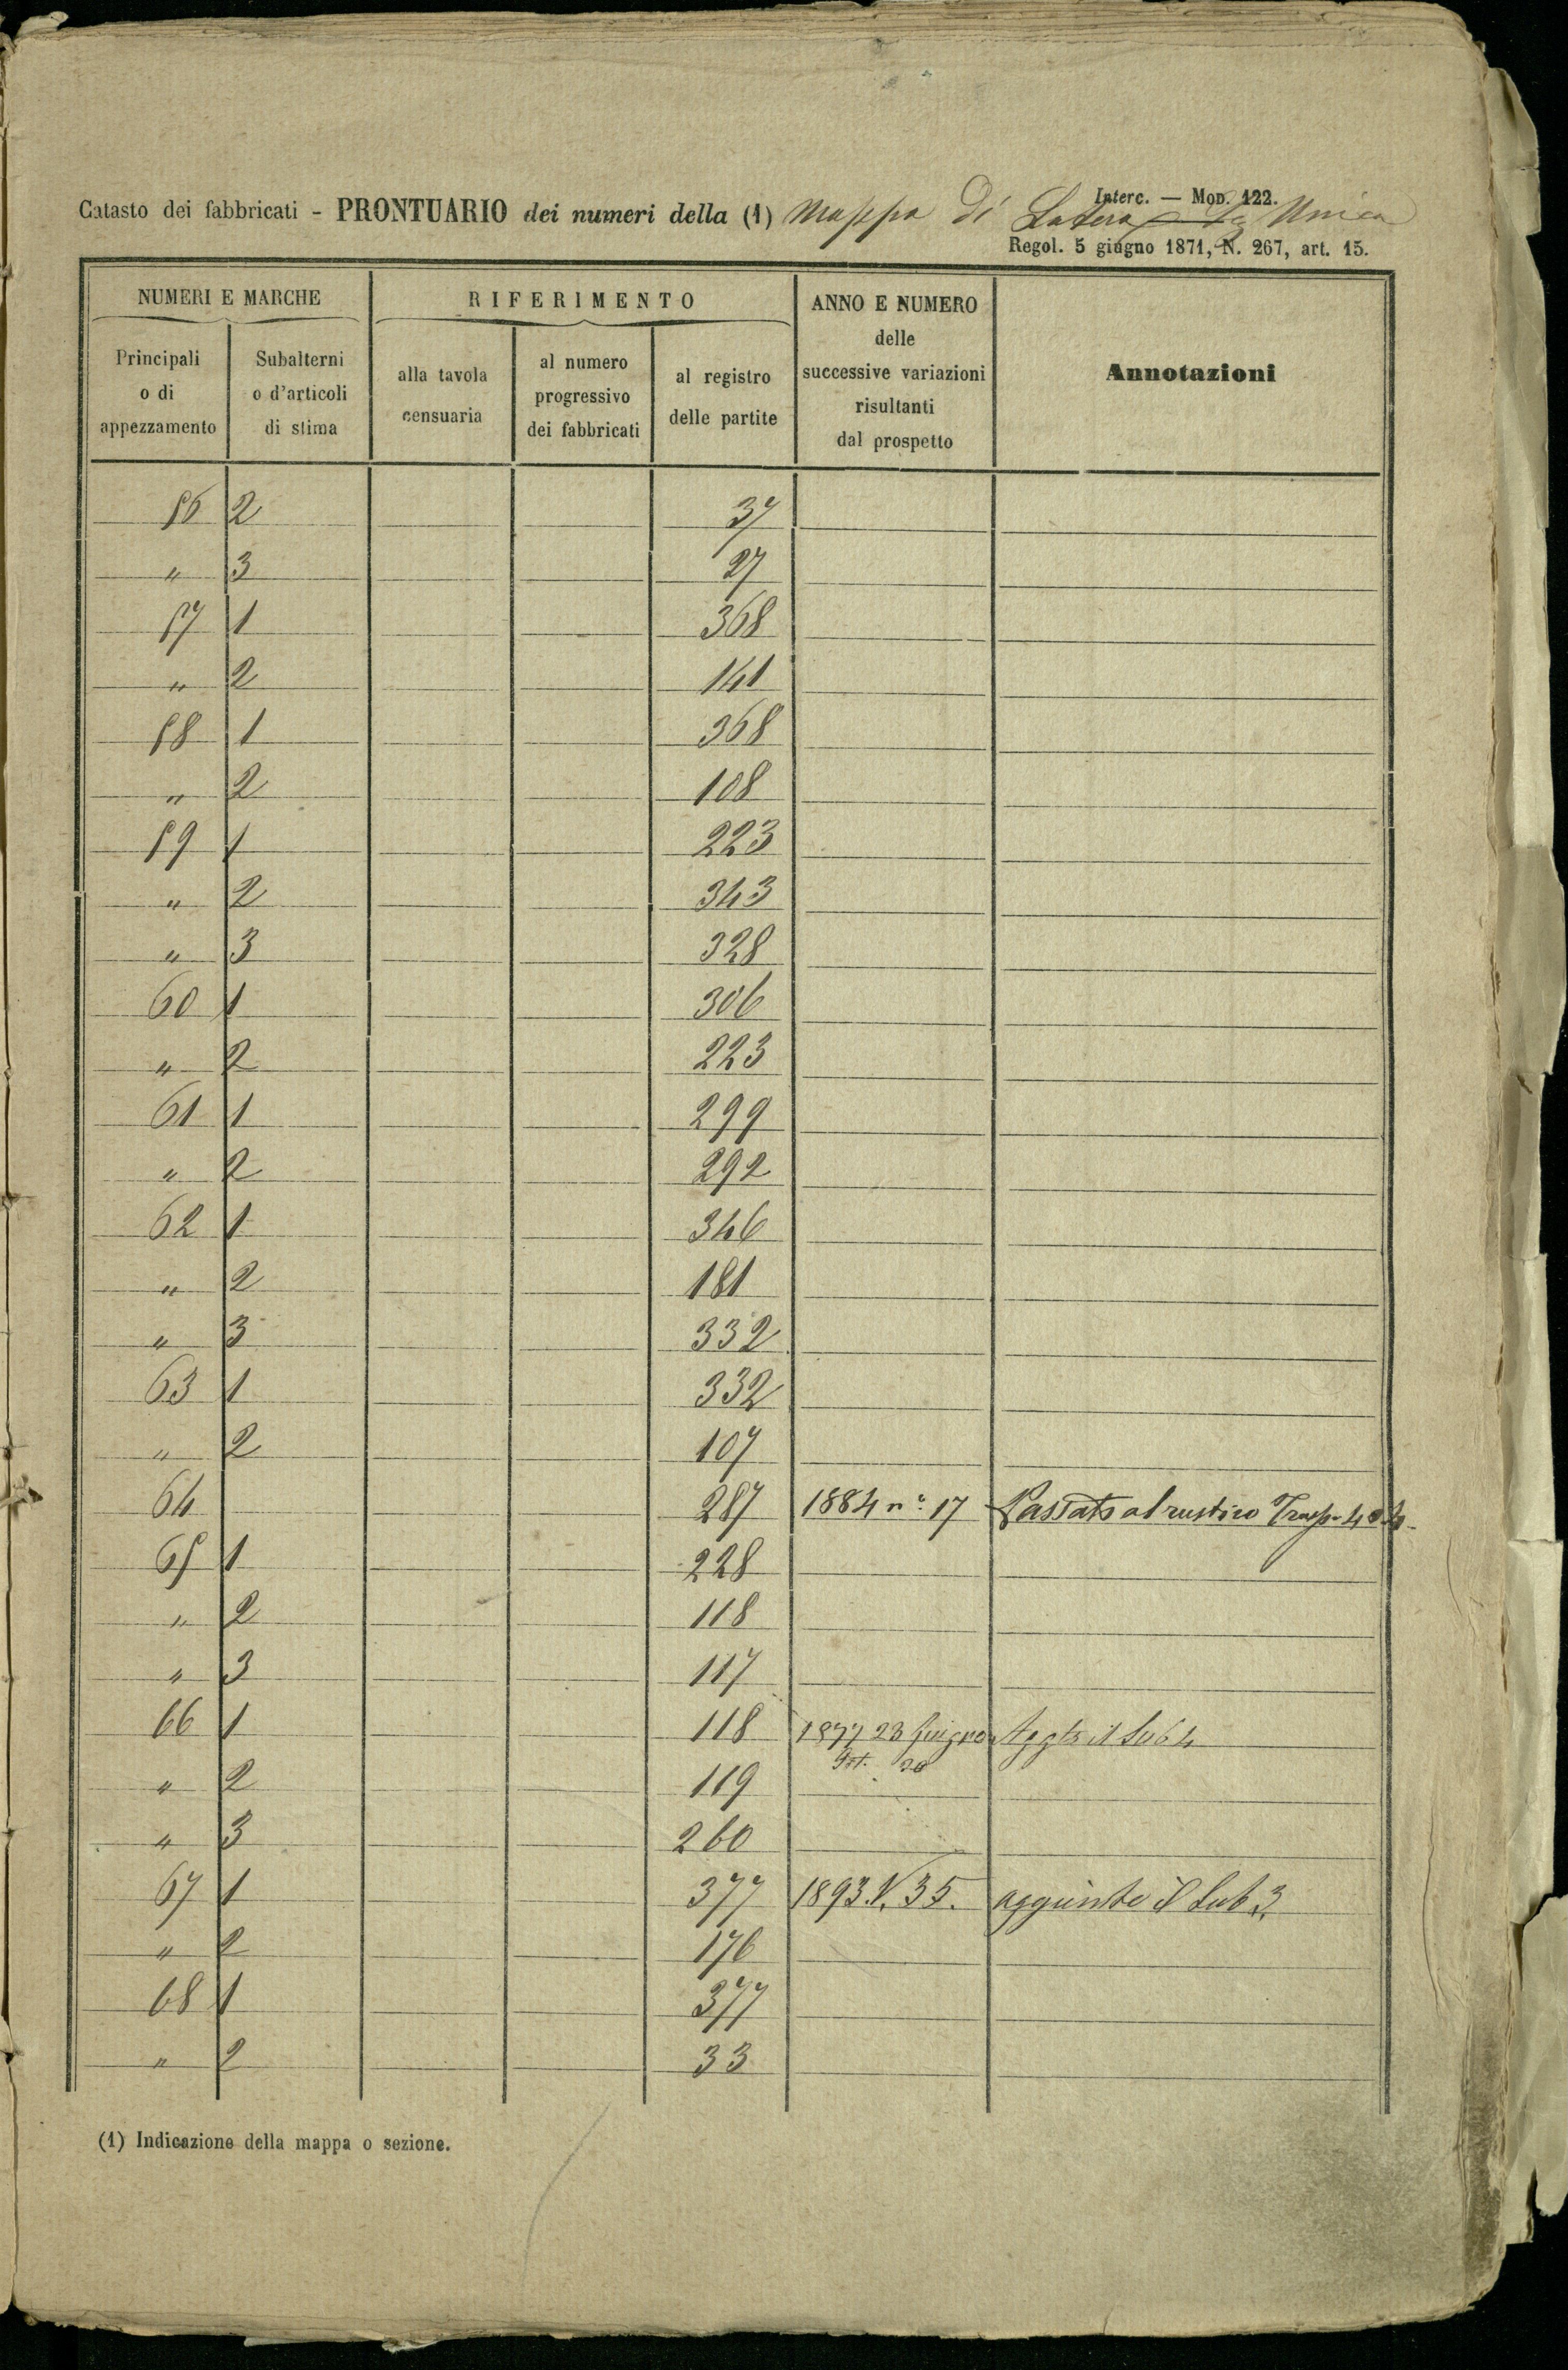 Interc. — Mod. 122.
Catasto dei fabbricati - PRONTUARIO dei numeri della (1) Mappa di Latera Unica
Regol. 5 giugno 1871, N. 267, art. 15.
NUMERI E MARCHE RIFERIMENTO ANNO E NUMERO delle successive variazioni risultanti dal prospetto Annotazioni
Principali o di appezzamento Subalterni o d'articoli di stima alla tavola censuaria al numero progressivo dei fabbricati al registro delle partite
56 2 37
" 3 27
57 1 368
" 2 141
58 1 368
" 2 108
59 1 223
" 2 343
" 3 328
60 1 306
" 2 223
61 1 299
" 2 292
62 1 346
" 2 181
" 3 332
63 1 332
" 2 107
64 287 1884 n° 17 Passato al rustico
65 1 228
" 2 118
" 3 117
66 1 118 1877 23 Giugno Aggto il Sub 4
" 2 119
" 3 260
67 1 377 1893.N.35. aggiunto il Sub 3
" 2 176
68 1 377
" 2 33
(1) Indicazione della mappa o sezione.